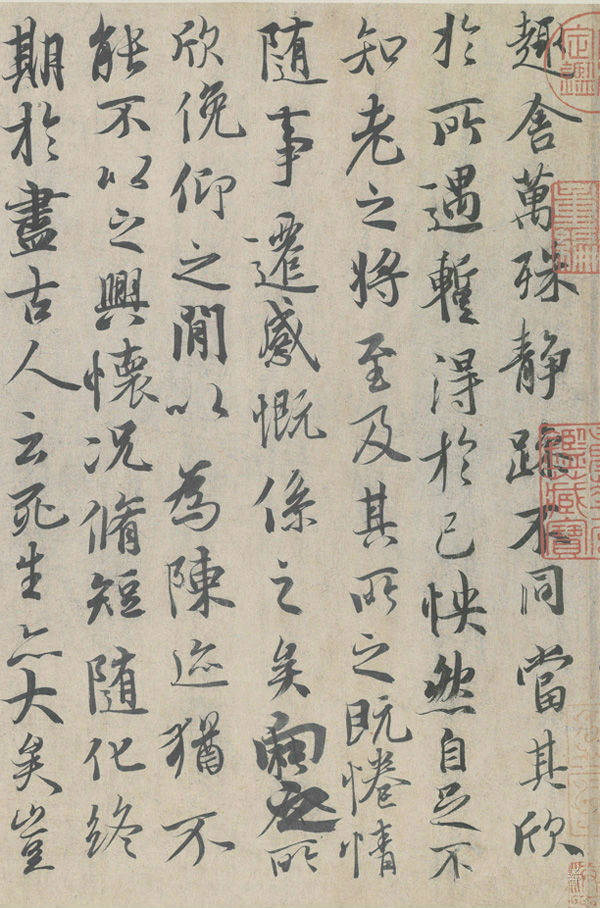 定鑑
重編
鑑藏寶
趣舍萬殊静躁不同當其欣
於所遇蹔得於己怏然自足不
知老之將至及其所之既惓情
隨事遷感慨係之矣向之所
欣俛仰之閒以為陳迹猶不
能不以之興懷況脩短隨化終
期於盡古人云死生亦大矣豈